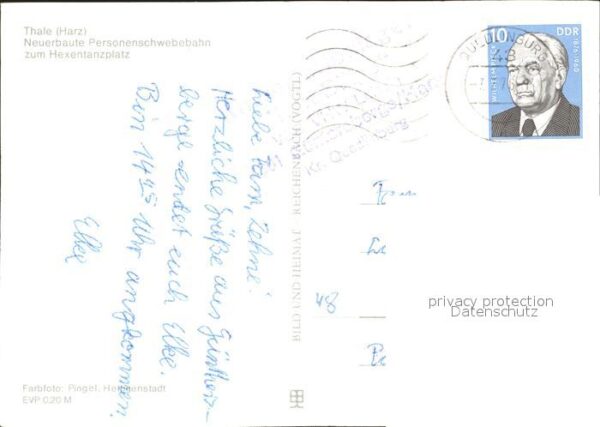 Thale (Harz)
Neuerbaute Personenschwebebahn
zum Hexentanzplatz
Liebe Fam. Zehme!
Herzliche Grüße aus Günthers-
berge sendet euch Elke.
Bin 14 Uhr angekommen.
Elke
Farbfoto: Pingel, Heiligenstadt
EVP 0,20 M
BILD UND HEIMAT REICHENBACH (VOGTL)
10
DDR
WILHELM PIECK
QUEDLINBURG
Kr. Quedlinburg
Fam
48
privacy protection
Datenschutz